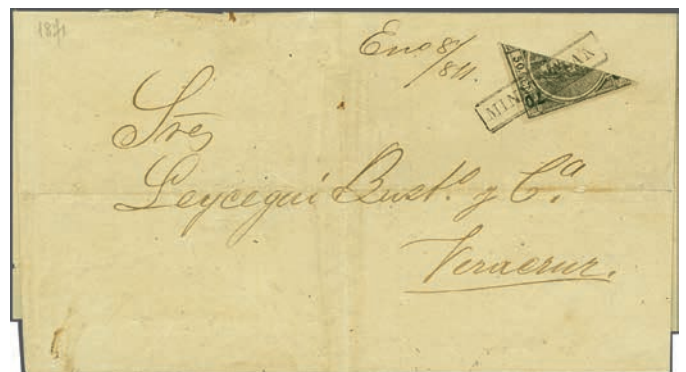 1871
Eno 8/
/811.
MINA
Sres
Leycegui Bust.º y C.ª
Veracruz.